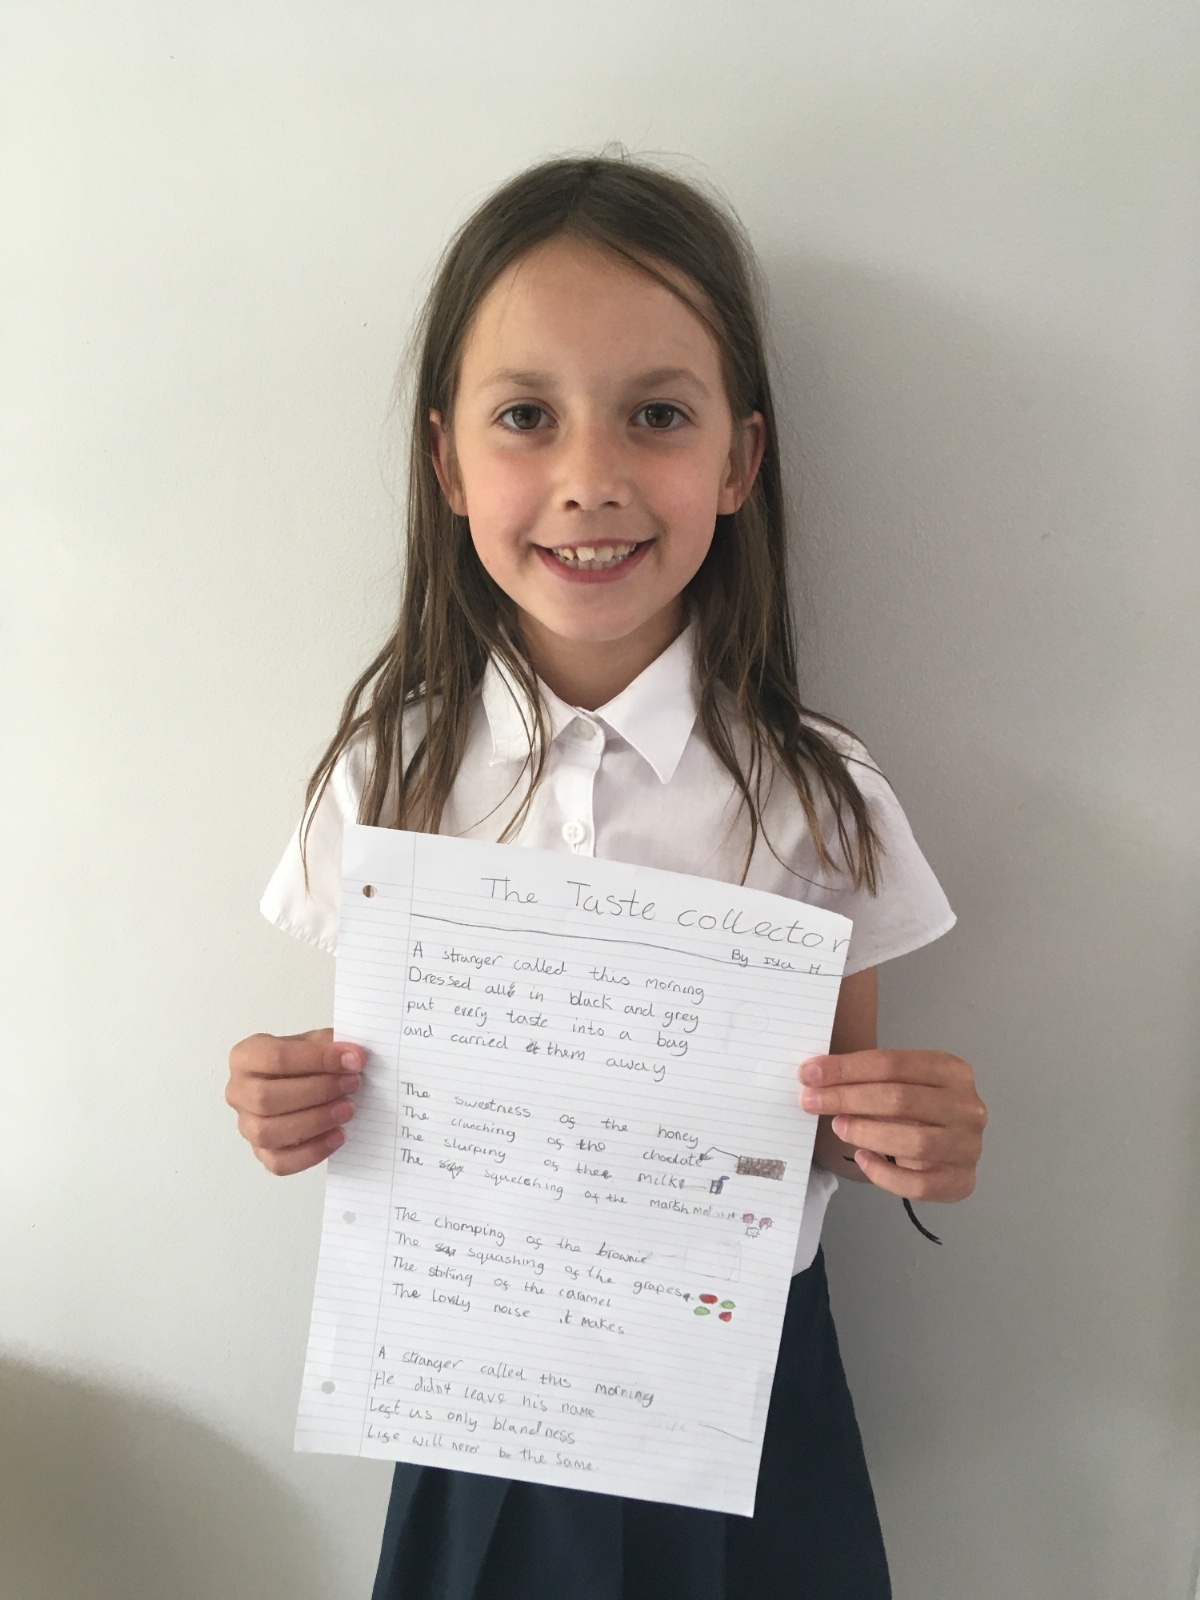 The Taste collector
By Isla H
A stranger called this morning
Dressed all in black and grey
put every taste into a bag
and carried them away
The sweetness of the honey
The crunching of the choclate
The slurping of the milk
The squelching of the marshmallow
The chomping of the brownie
The squashing of the grapes
The of the caramel
The lovely noise it makes
A stranger called this morning
He didn't leave his name
Left us only blandness
Life will never be the same.